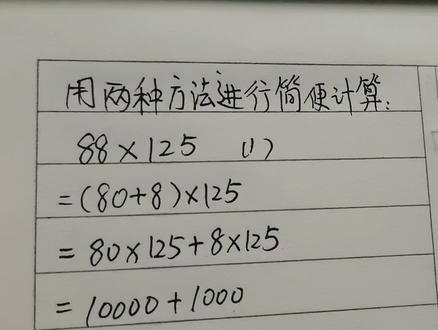 用两种方法进行简便计算:
88×125 (1)
=(80+8)×125
=80×125+8×125
=10000+1000